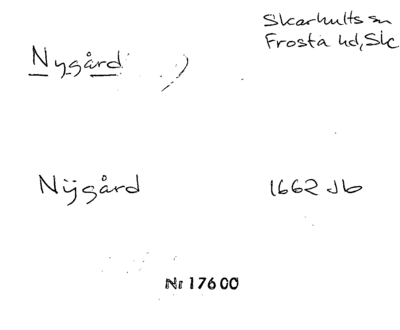 Skarhults sn
Frosta hd, Sk
Nygård
Nÿgård
1662 Jb
Nr 17600